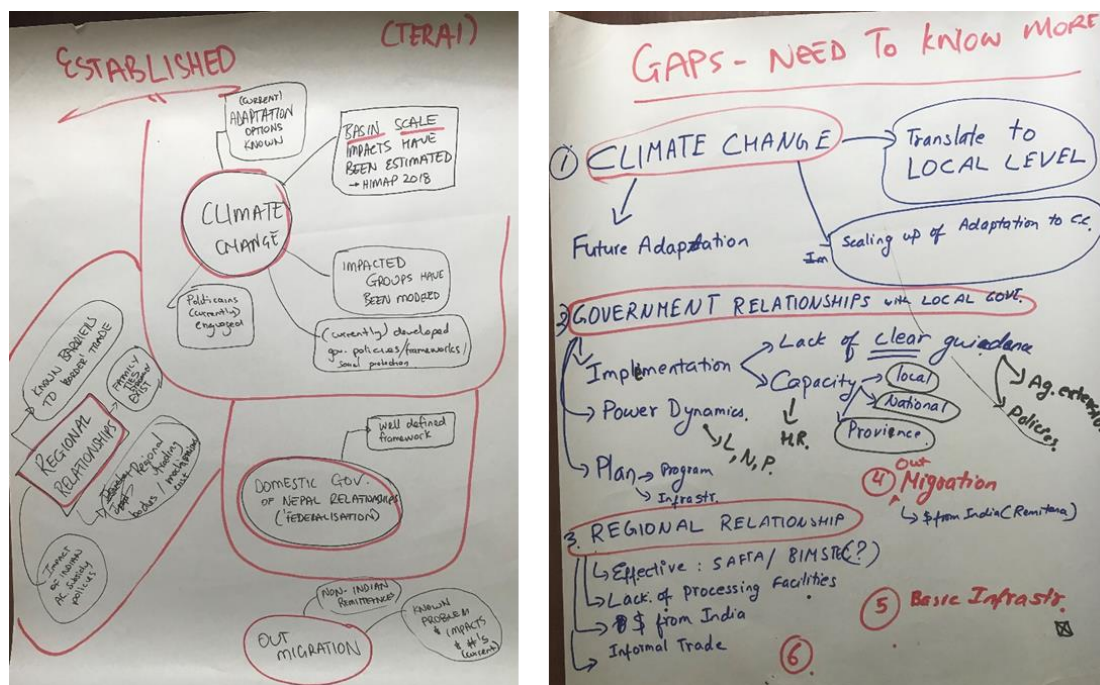 ESTABLISHED
(TERAI)
(CURRENT)
ADAPTATION
OPTIONS
KNOWN
BASIN SCALE
IMPACTS HAVE
BEEN ESTIMATED
→ HIMAP 2018
CLIMATE
CHANGE
IMPACTED
GROUPS HAVE
BEEN MODELED
Politicains
(currently)
engaged
(currently) developed
gov. policies/frameworks/
social protection
KNOWN BARRIERS
TO BORDER TRADE
FAMILY
TIES
EXIST
REGIONAL
RELATIONSHIPS
Regional
funding
bodies / mechanisms
exist
IMPACT
OF INDIAN
AG. SUBSIDY
POLICIES
well defined
framework
DOMESTIC GOV.
OF NEPAL RELATIONSHIPS
('FEDERALISATION)
NON-INDIAN
REMITTANCES
OUT
MIGRATION
KNOWN
PROBLEM
& IMPACTS
& #'s
(current)
GAPS - NEED TO KNOW MORE
1 CLIMATE CHANGE
Translate to
LOCAL LEVEL
Future Adaptation
Im
Scaling up of Adaptation to C.C.
2) GOVERNMENT RELATIONSHIPS with LOCAL GOVT.
Implementation
Lack of clear guidance
Capacity
local
National
Provience
H.R.
Ag. extension
Policies
Power Dynamics.
L, N, P.
Plan → Program
Infrastr.
3. REGIONAL RELATIONSHIP
Effective : SAFTA/ BIMSTE(?)
Lack of processing Facilities
$ from India
Informal Trade
4 Out Migration
$ from India (Remitana)
5 Basic Infrastr.
6